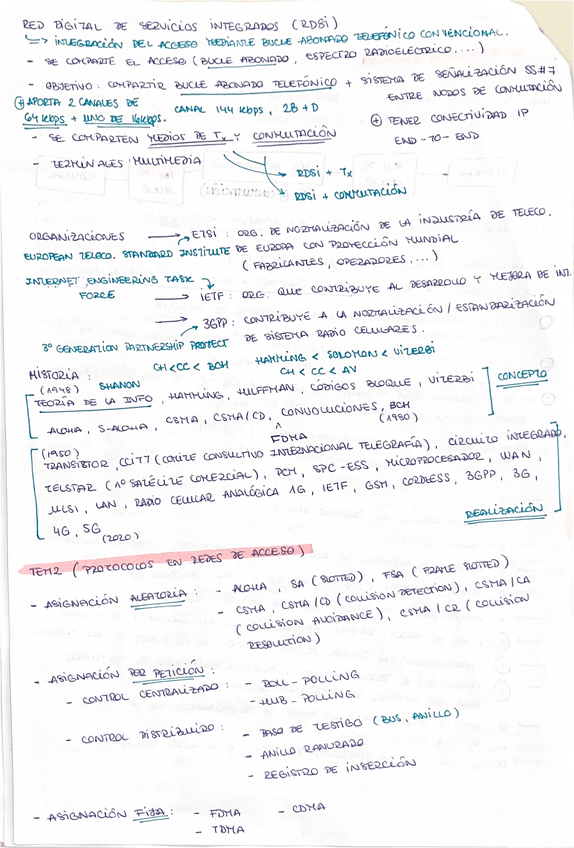 RED DIGITAL DE SERVICIOS INTEGRADOS (RDSi)
↳ INTEGRACIÓN DEL ACCESO MEDIANTE BUCLE ABONADO TELEFÓNICO CONVENCIONAL.
- SE COMPARTE EL ACCESO (BUCLE ABONADO, ESPECTRO RADIOELÉCTRICO....)
- OBJETIVO: COMPARTIR BUCLE ABONADO TELEFÓNICO + SISTEMA DE SEÑALIZACIÓN SS#7
ENTRE NODOS DE CONMUTACIÓN
⊕ APORTA 2 CANALES DE
64 Kbps + UNO DE 16Kbps.
CANAL 144 Kbps, 2B + D
⊕ TENER CONECTIVIDAD IP
END-TO-END
- SE COMPARTEN MEDIOS DE Tx Y CONMUTACIÓN
- TERMINALES MULTIMEDIA
RDSi + Tx
RDSi + CONMUTACIÓN
ORGANIZACIONES → ETSI: ORG. DE NORMALIZACIÓN DE LA INDUSTRÍA DE TELECO.
EUROPEAN TELECO. STANDARD INSTITUTE DE EUROPA CON PROYECCIÓN MUNDIAL
(FABRICANTES, OPERADORES,...)
INTERNET ENGINEERING TASK
FORCE
→ IETF: ORG. QUE CONTRIBUYE AL DESARROLLO Y MEJORA DE INT.
→ 3GPP: CONTRIBUYE A LA NORMALIZACIÓN/ESTANDARIZACIÓN
DE SISTEMA RADIO CELULARES.
3º GENERATION PARTNERSHIP PROJECT
CH<CC<BCH
HAMMING < SOLOMON < VITERBI
CH < CC < AV
HISTORIA:
(1948) SHANON
TEORÍA DE LA INFO, HAMMING, HUFFMAN, CÓDIGOS BLOQUE, VITERBI
CONCEPTO
ALOHA, S-ALOHA, CSMA, CSMA/CD, CONVOLUCIONES, BCH
(1980)
FDMA
(1950)
TRANSISTOR, CCITT (COMITE CONSULTIVO INTERNACIONAL TELEGRAFÍA), CIRCUITO INTEGRADO,
TELSTAR (1º SATÉLITE COMERCIAL), PCM, SPC-ESS, MICROPROCESADOR, WAN,
VLSI, LAN, RADIO CELULAR ANALÓGICA 1G, IETF, GSM, CORDLESS, 3GPP, 3G,
4G, 5G
(2020)
REALIZACIÓN
TEM2 (PROTOCOLOS EN REDES DE ACCESO)
- ASIGNACIÓN ALEATORIA: - ALOHA, SA (SLOTTED), FSA (FRAME SLOTTED)
- CSMA, CSMA/CD (COLLISION DETECTION), CSMA/CA
(COLLISION AVOIDANCE), CSMA/CR (COLLISION
RESOLUTION)
- ASIGNACIÓN POR PETICIÓN:
- CONTROL CENTRALIZADO: - ROLL-POLLING
- HUB-POLLING
- CONTROL DISTRIBUIDO: - PASO DE TESTIGO (BUS, ANILLO)
- ANILLO RANURADO
- REGISTRO DE INSERCIÓN
- ASIGNACIÓN FIJA: - FDMA - CDMA
- TDMA